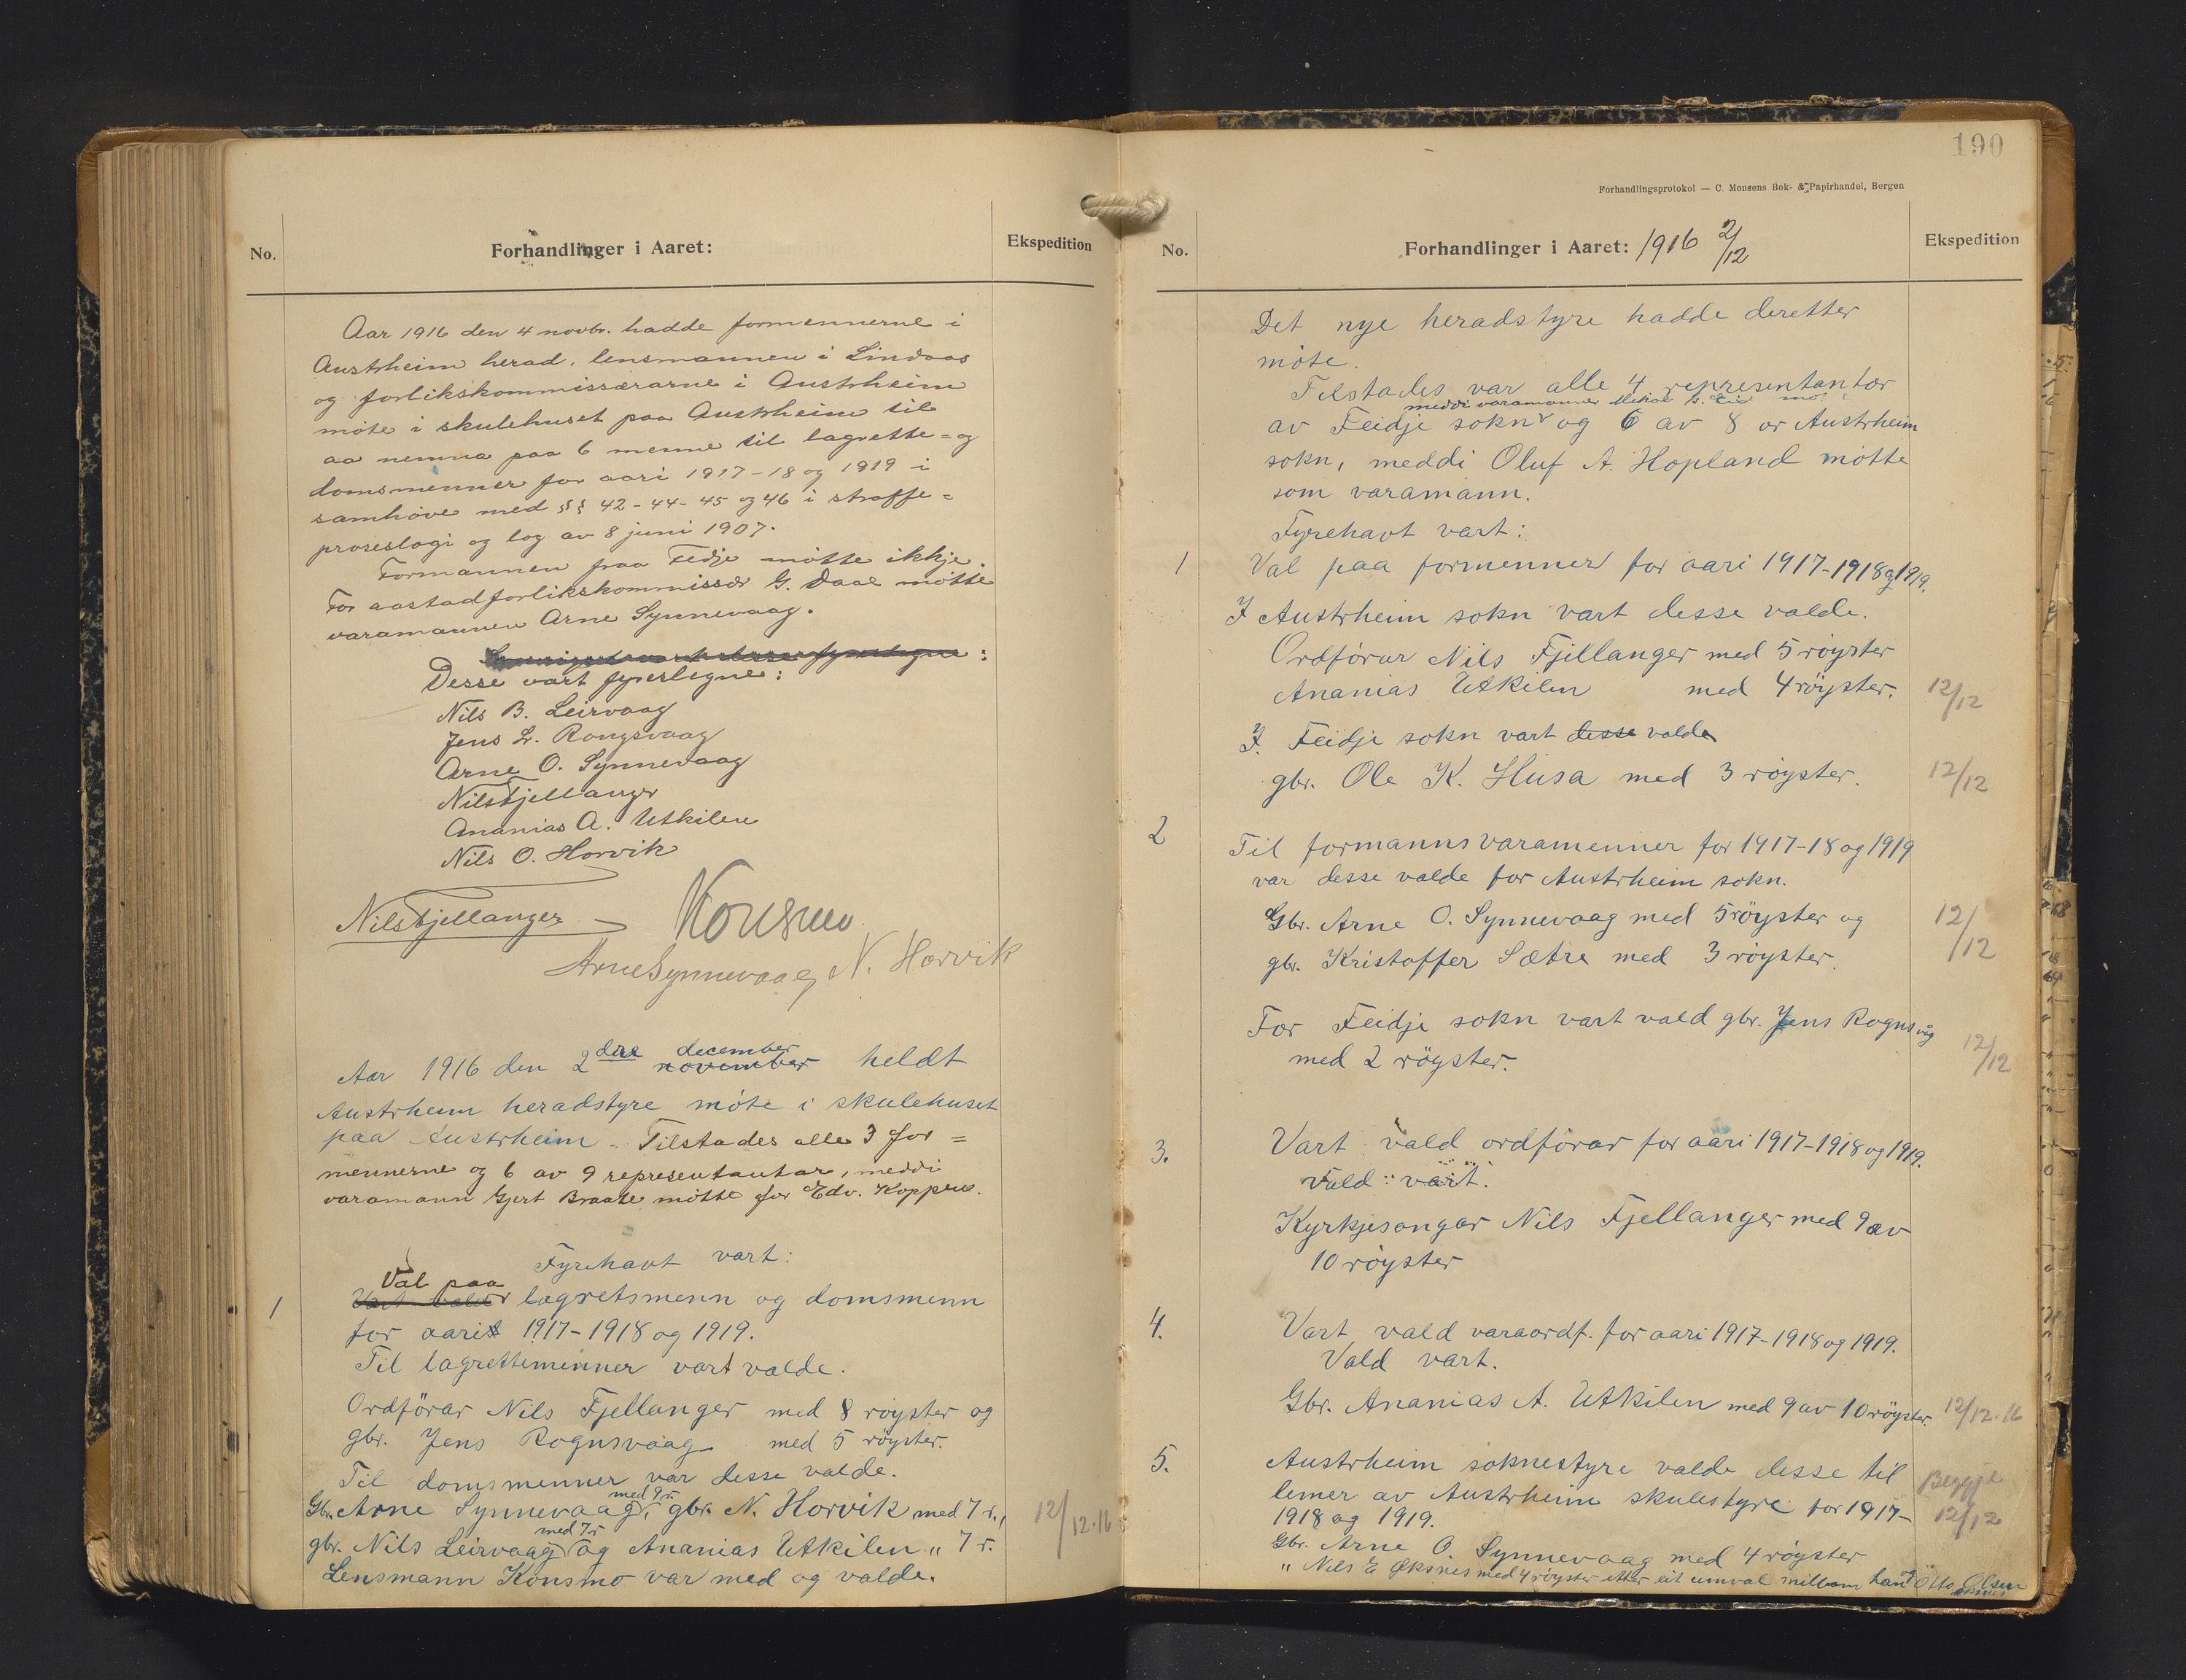 No.
Forhandlinger i Aaret:
Ekspedition
Aar 1916 den 4 novbr. hadde formennerne i
Austrheim herad, lensmannen i Lindaas
og forlikskommissærarne i Austrheim
møte i skulehuset paa Austrheim til
aa nemna paa 6 menne til lagrette= og
domsmenner for aari 1917-18 og 1919 i
samhøve med §§ 42-44-45 og 46 i straffe=
proseslogi og log av 8 juni 1907.
Formannen fraa Fedje møtte ikkje.
For aastadforlikskommissær G. Daae møtte
varamannen Arne Synnevaag.
Desse vart fyreslegne:
Nils B. Leirvaag
Jens L. Rongsvaag
Arne O. Synnevaag
Nils Fjellanger
Ananias A. Utkilen
Nils O. Horvik
Nils Fjellanger
Konsmo
Arne Synnevaag, N. Horvik
Aar 1916 den 2dre november december heldt
Austrheim heradstyre møte i skulehuset
paa Austrheim - Tilstades alle 3 for=
mennerne og 6 av 9 representantar, meddi
varamann Gjert Braate møtte for Edv. Koppen.
Fyrehavt vart:
Val paa
1 Vart valde lagretsmenn og domsmenn
for aari 1917-1918 og 1919.
Til lagrettemenner vart valde.
Ordförar Nils Fjellanger med 8 røyster og
gbr. Jens Rognsvaag med 5 røyster.
Til domsmenner var desse valde.
Gbr. Arne Synnevaag med 9 r., gbr. N. Horvik med 7 r., 12/12-16
gbr. Nils Leirvaag med 7 r og Ananias Utkilen " 7 r.
Lensmann Konsmo var med og valde.
190
Forhandlingsprotokol — C. Monsens Bok- & Papirhandel, Bergen
No.
Forhandlinger i Aaret: 1916 2/12
Ekspedition
Det nye heradstyre hadde deretter
møte.
Tilstades var alle 4 representantar
meddi varamannen
av Feidje sokn og 6 av 8 or Austrheim
sokn, meddi Oluf A. Hopland møtte
som varamann.
Fyrehavt vart:
1 Val paa formenner for aari 1917-1918 og 1919.
I Austrheim sokn vart desse valde.
Ordførar Nils Fjellanger med 5 røyster
Ananias Utkilen med 4 røyster. 12/12
I Feidje sokn vart desse valde
gbr. Ole K. Husa med 3 røyster. 12/12
2 Til formannsvaramenner for 1917-18 og 1919
var desse valde for Austrheim sokn.
Gbr. Arne O. Synnevaag med 5 røyster og 12/12
gbr. Kristoffer Sætre med 3 røyster.
For Feidje sokn vart vald gbr. Jens Rognsvåg
med 2 røyster. 12/12
3. Vart vald ordførar for aari 1917-1918 og 1919.
Vald vart.
Kyrkjesongar Nils Fjellanger med 9 av
10 røyster
4. Vart vald varaordf. for aari 1917-1918 og 1919.
Vald vart.
Gbr. Ananias A. Utkilen med 9 av 10 røyster. 12/12-16
5. Austrheim soknestyre valde desse til
lemer av Austrheim skulestyre for 1917-
1918 og 1919.
Begge 12/12
Gbr. Arne O. Synnevaag med 4 røyster
" Nils E Øksnes med 4 røyster etter eit umval millom han og Otto Olsen
Øksnes